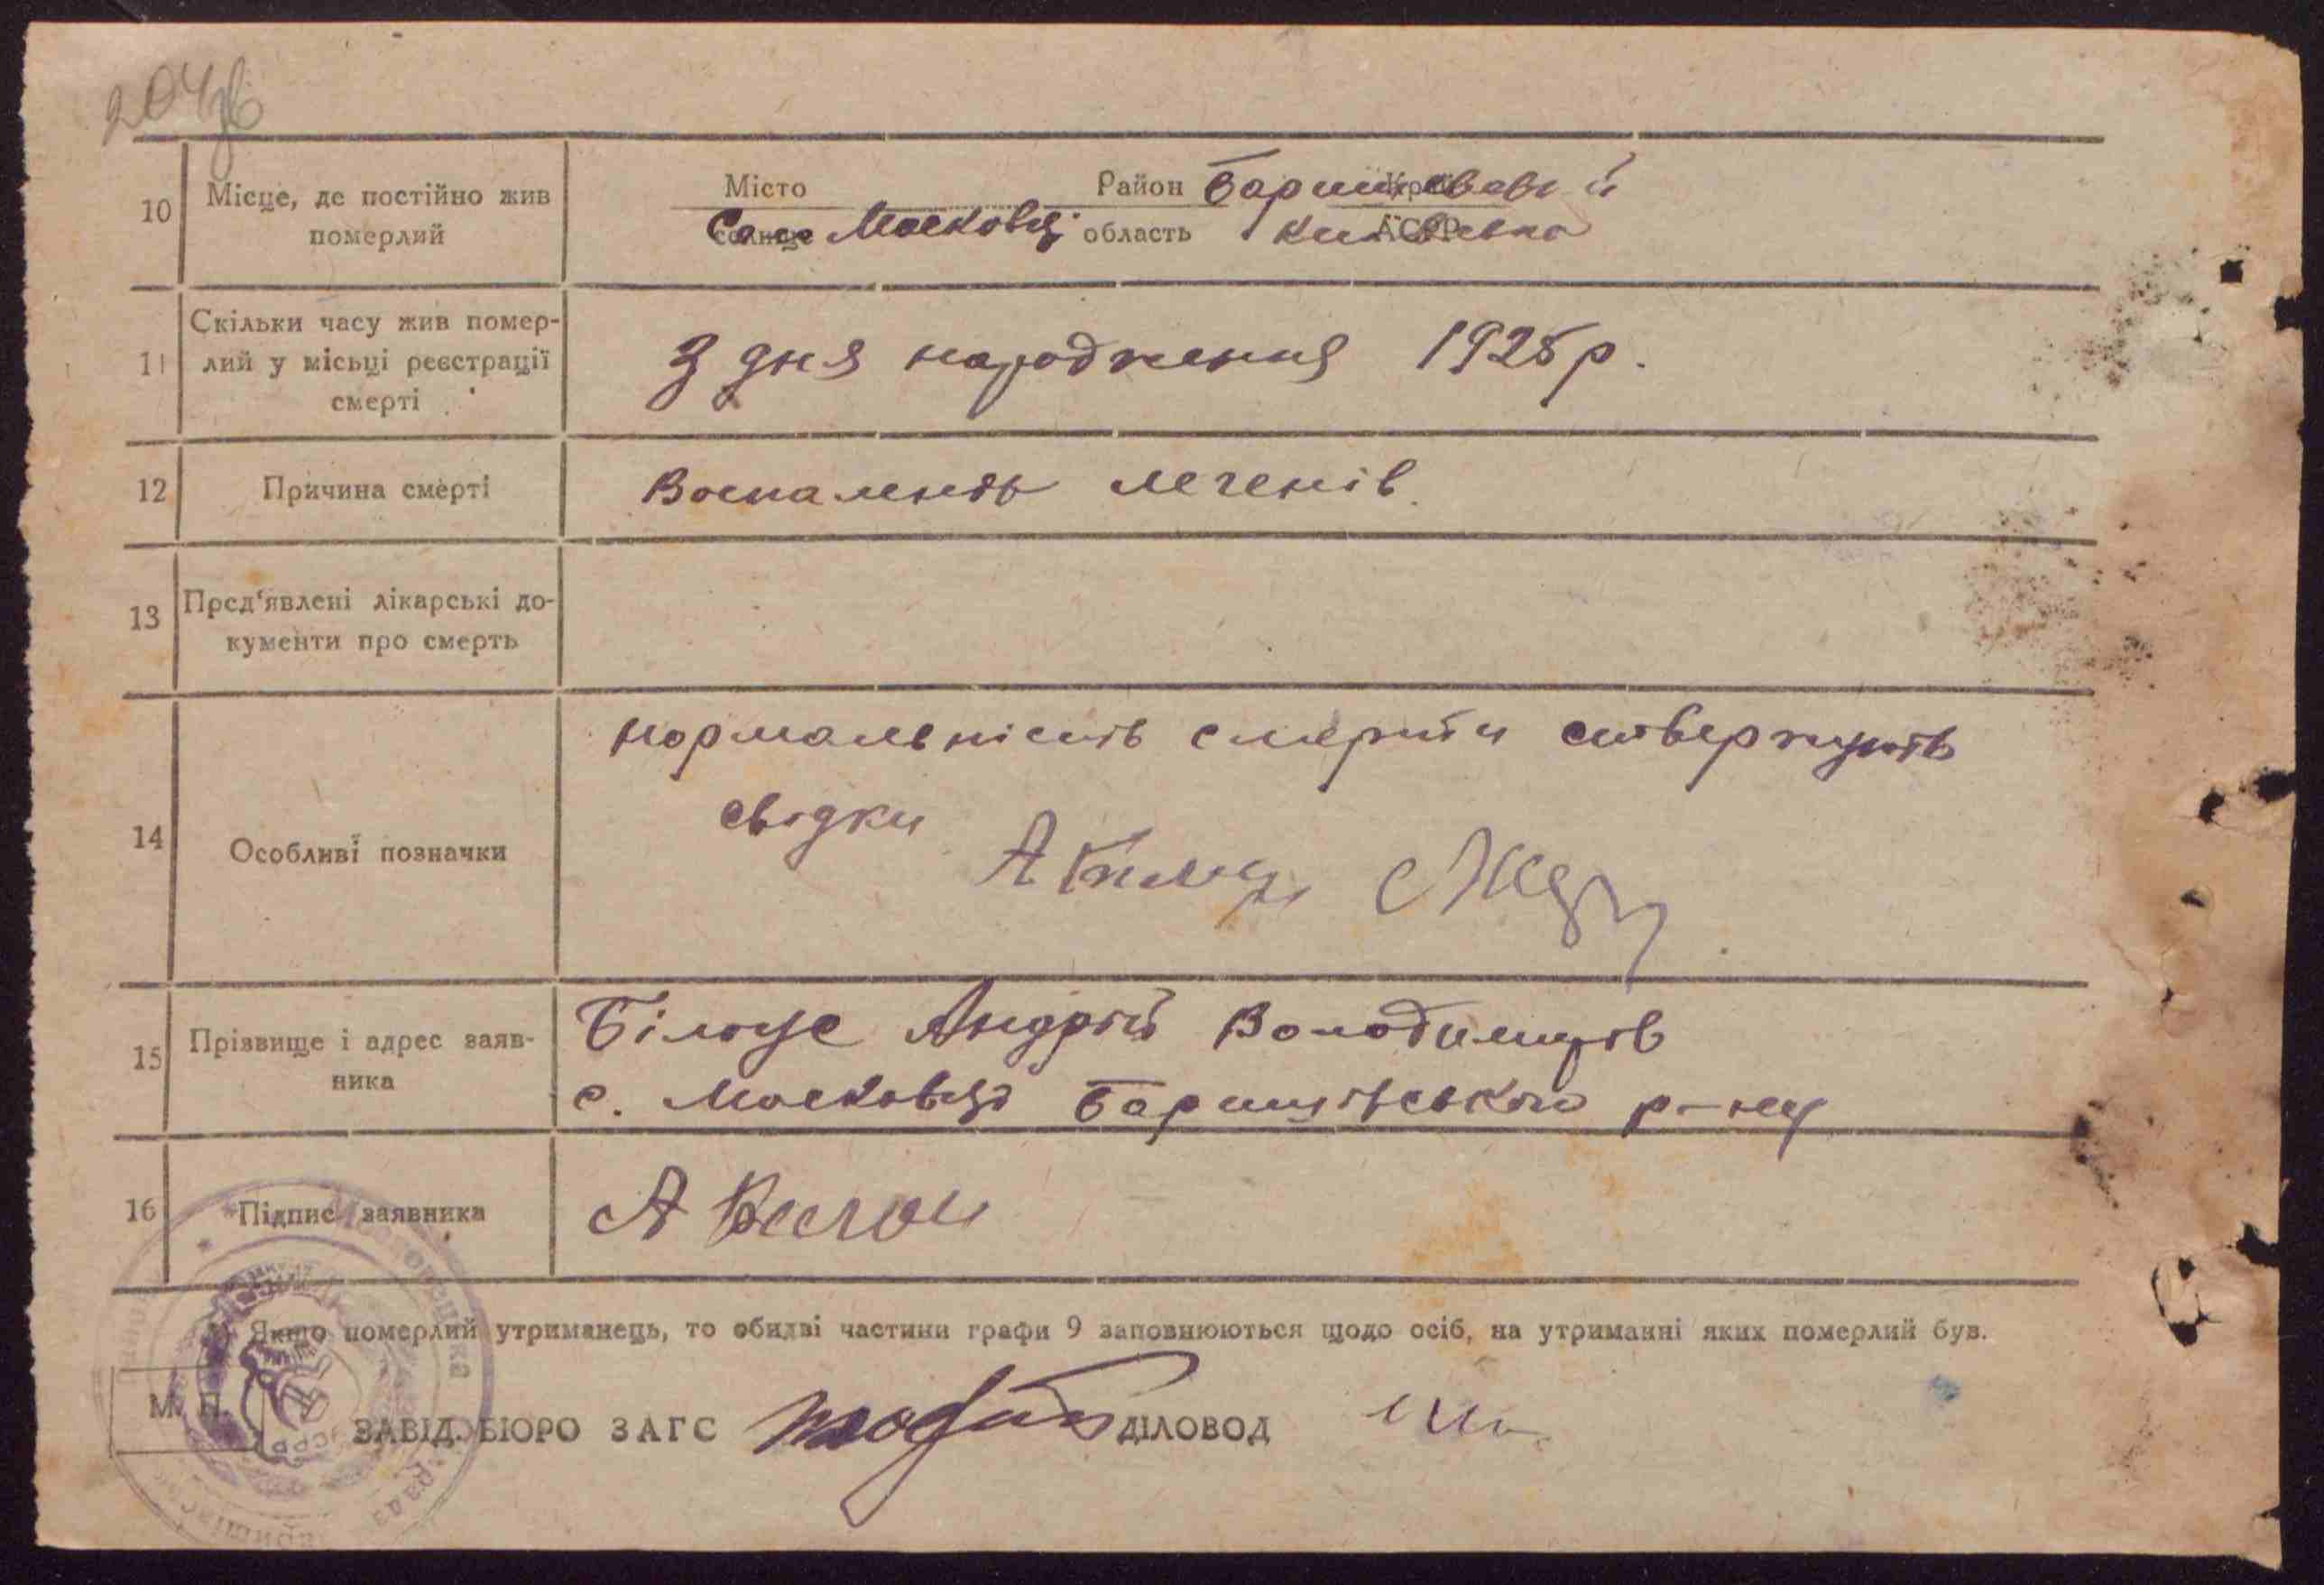 204зв
10
Місце, де постійно жив
померлий
Місто
селище
Село Московці
Район Баришевський
Край
область Київська
АСРР
11
Скільки часу жив помер-
лий у місьці реєстрації
смерті
З дня народження 1925 р.
12
Причина смерті
Воспаленя легенів.
13
Пред'явлені лікарські до-
кументи про смерть
14
Особливі позначки
нормальність смерти ствержують
свідки
15
Прізвище і адрес заяв-
ника
Білоус Андрій Володимирів
с. Московці Баришівського р-ну
16
Підпис заявника
А Билоу
Якщо померлий утриманець, то обидві частини графи 9 заповнюються щодо осіб, на утриманні яких померлий був.
М. П.
ЗАВІД. БЮРО ЗАГС
ДІЛОВОД